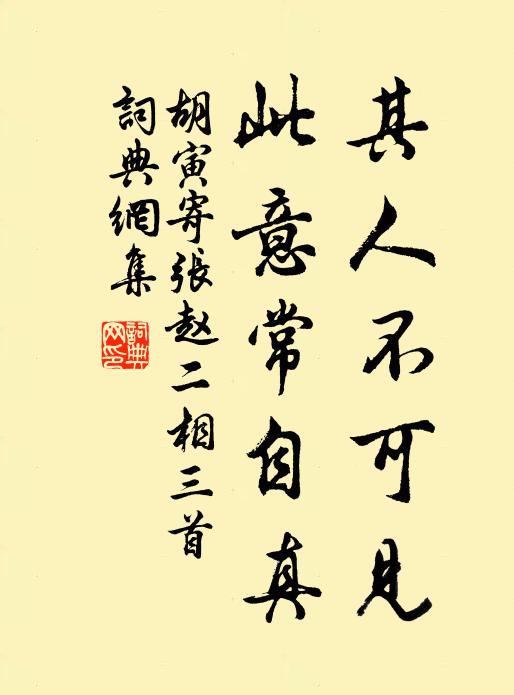 其人不可見
此意常自真
胡寅寄張赵二相三首
詞典網集
詞典網印